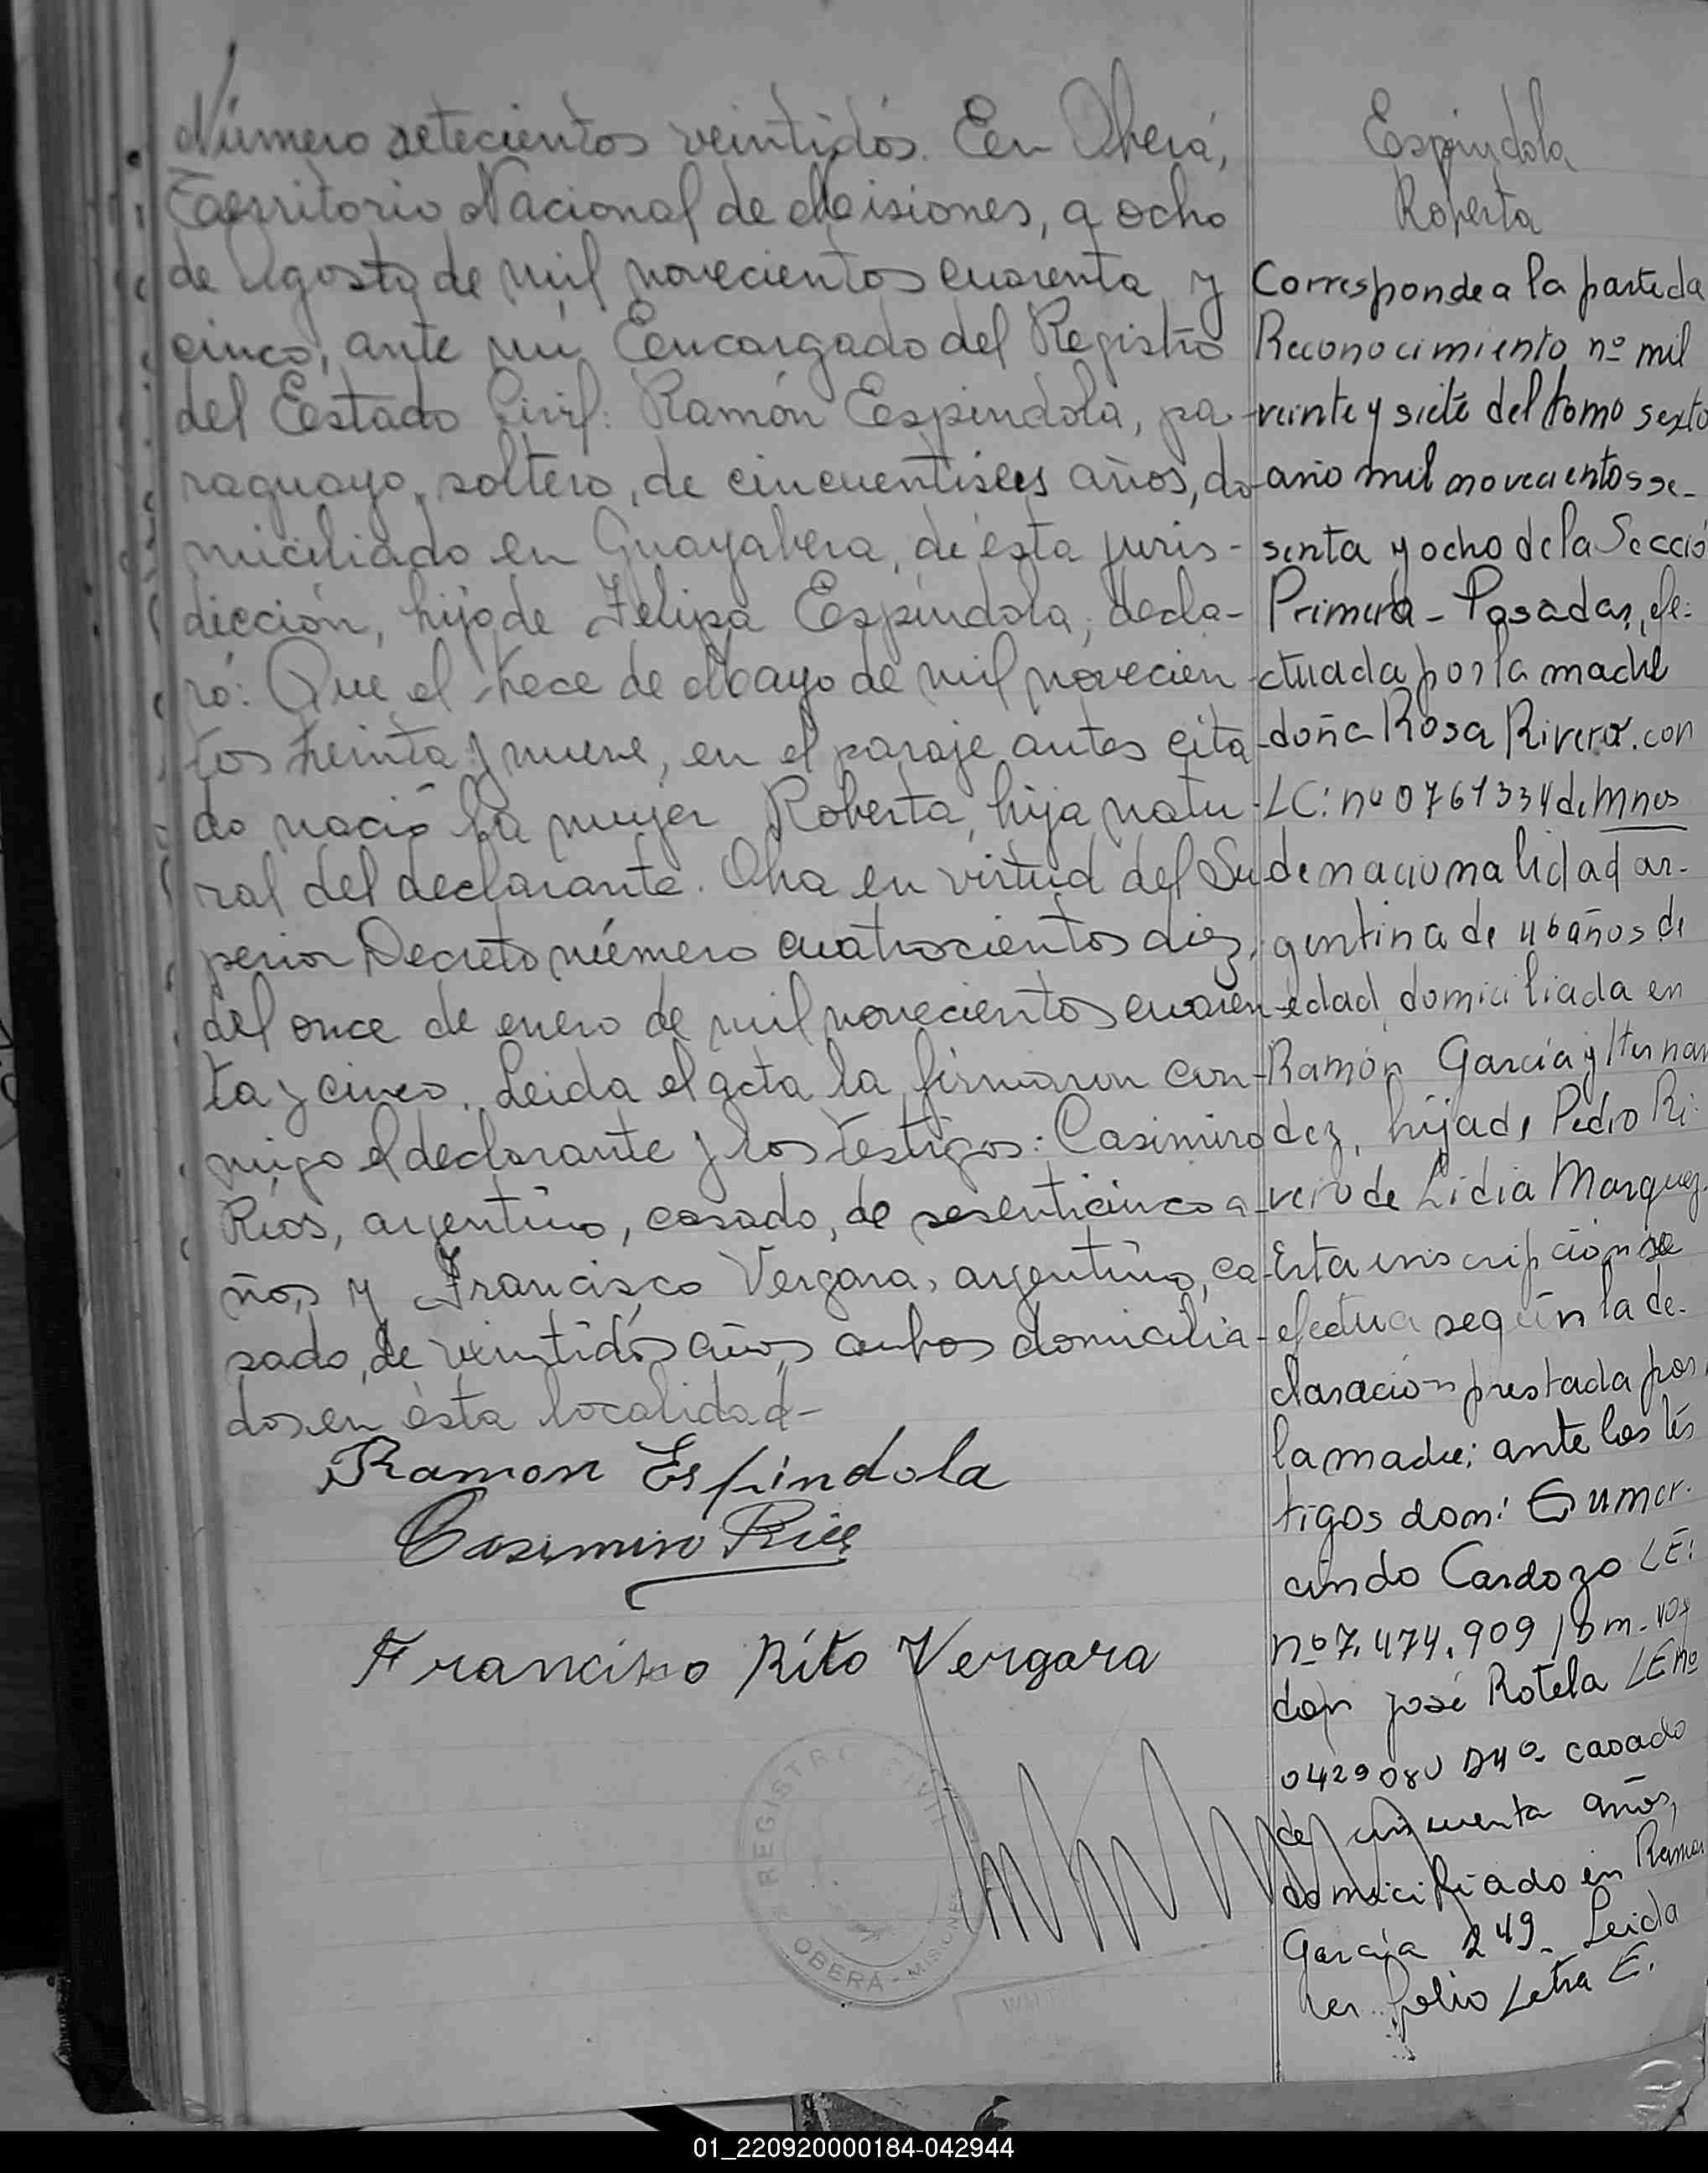 Número setecientos veintidós. En Oberá,
Territorio Nacional de Misiones, a ocho
de Agosto de mil novecientos cuarenta y
cinco, ante mí Encargado del Registro
del Estado Civil: Ramón Espíndola, pa-
raguayo, soltero, de cincuentiseis años, do-
miciliado en Guayabera, de ésta juris-
dicción, hijo de Felipa Espíndola, decla-
ró: Que el trece de Mayo de mil novecien-
tos treinta y nueve, en el paraje antes cita-
do nació la mujer Roberta, hija natu-
ral del declarante. Obra en virtud del Su-
perior Decreto número cuatrocientos diez,
del once de enero de mil novecientos cuaren-
ta y cinco. Leida el acta la firmaron con-
migo el declarante y los testigos: Casimiro
Ríos, argentino, casado, de sesenticinco a-
ños y Francisco Vergara, argentino, ca-
sado, de veintidós años, ambos domicilia-
dos en ésta localidad-
Ramon Espindola
Casimiro Rios
Francisco Rito Vergara
REGISTRO CIVIL
OBERÁ - MISIONES
Espíndola
Roberta
Corresponde a la partida
Reconocimiento nº mil
veinte y siete del tomo sexto
año mil novecientos se-
senta y ocho de la Secció
Primera - Posadas, efe-
ctuada por la madre
doña Rosa Rivero. con
LC: nº 0761334 de Mnes
de nacionalidad ar-
gentina de 46 años de
edad, domiciliada en
Ramón García y Hernan
dez, hija de Pedro Ri-
vero de Lidia Marquez.
Esta inscripción se
efectua según la de-
claración prestada por
la madre; ante los tes
tigos don: Gumer-
cindo Cardozo LE:
nº 7.474.909
don José Rotela LE nº
casado
de cincuenta años,
domiciliado en Ramon
García 249. Leida
folio Letra E.
01_220920000184-042944